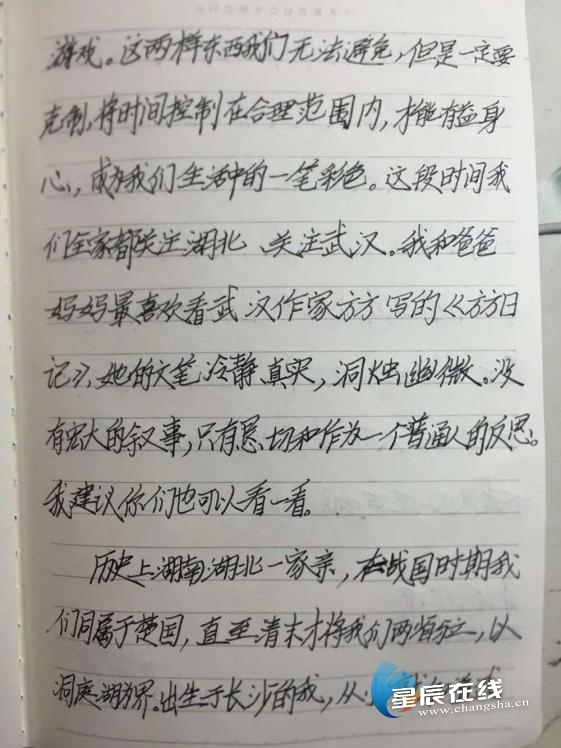 游戏。这两样东西我们无法避免,但是一定要
克制,将时间控制在合理范围内,才能有益身
心,成为我们生活中的一笔彩色。这段时间我
们全家都关注湖北、关注武汉。我和爸爸
妈妈最喜欢看武汉作家方方写的《方方日
记》,她的文笔冷静、真实,洞烛幽微。没
有宏大的叙事,只有恳切和作为一个普通人的反思。
我建议你们也可以看一看。
历史上湖南湖北一家亲,在战国时期我
们同属于楚国,直至清末才将我们两省分立,以
洞庭湖为界。出生于长沙的我,从
星辰在线
www.changsha.cn